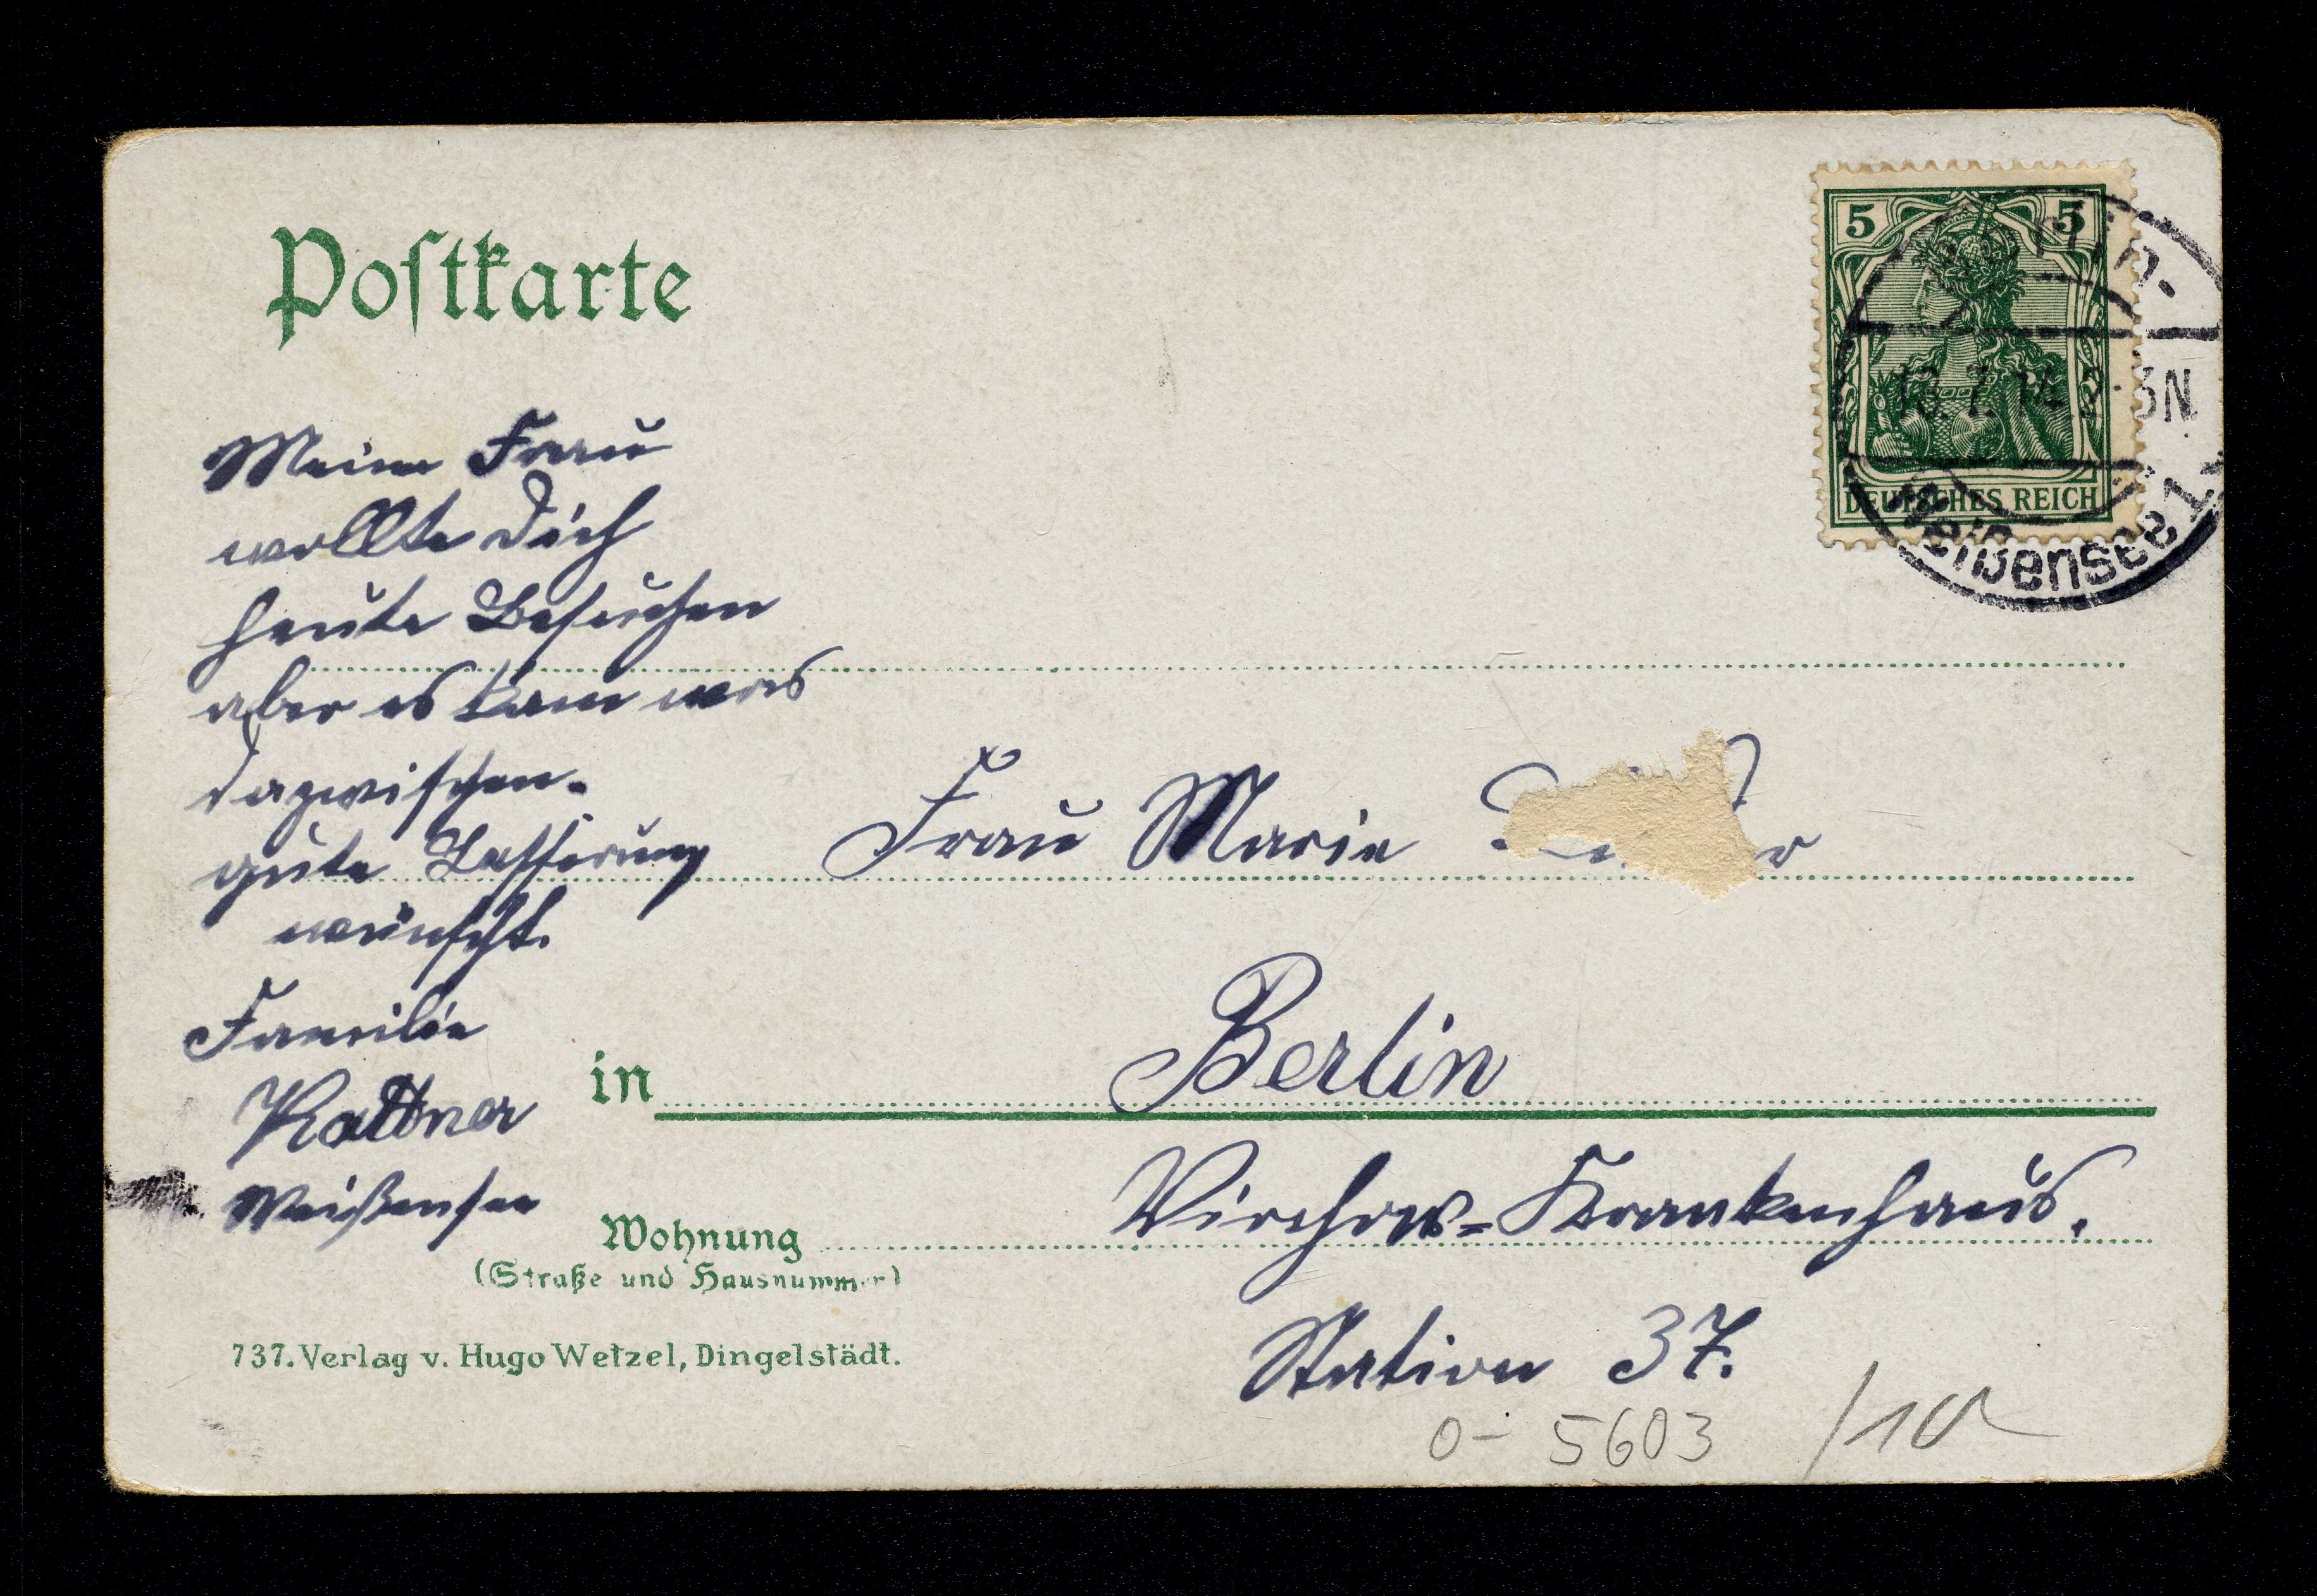 Postkarte
5 5
DEUTSCHES REICH
3N
Weißensee
Meine Frau
wollte Dich
heute Besuchen
aber es kam was
dazwischen.
gute Besserung
wünscht.
Familie
Kattner
Weißensee
Frau Marie
in Berlin
Wohnung Virchow=Krankenhaus.
(Straße und Hausnummer)
Station 37.
737. Verlag v. Hugo Wetzel, Dingelstädt.
0- 5603 /10